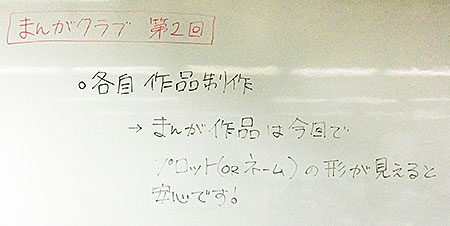 まんがクラブ 第2回
○各自 作品制作
→ まんが作品は今回で
プロット(ORネーム)の形が見えると
安心です!